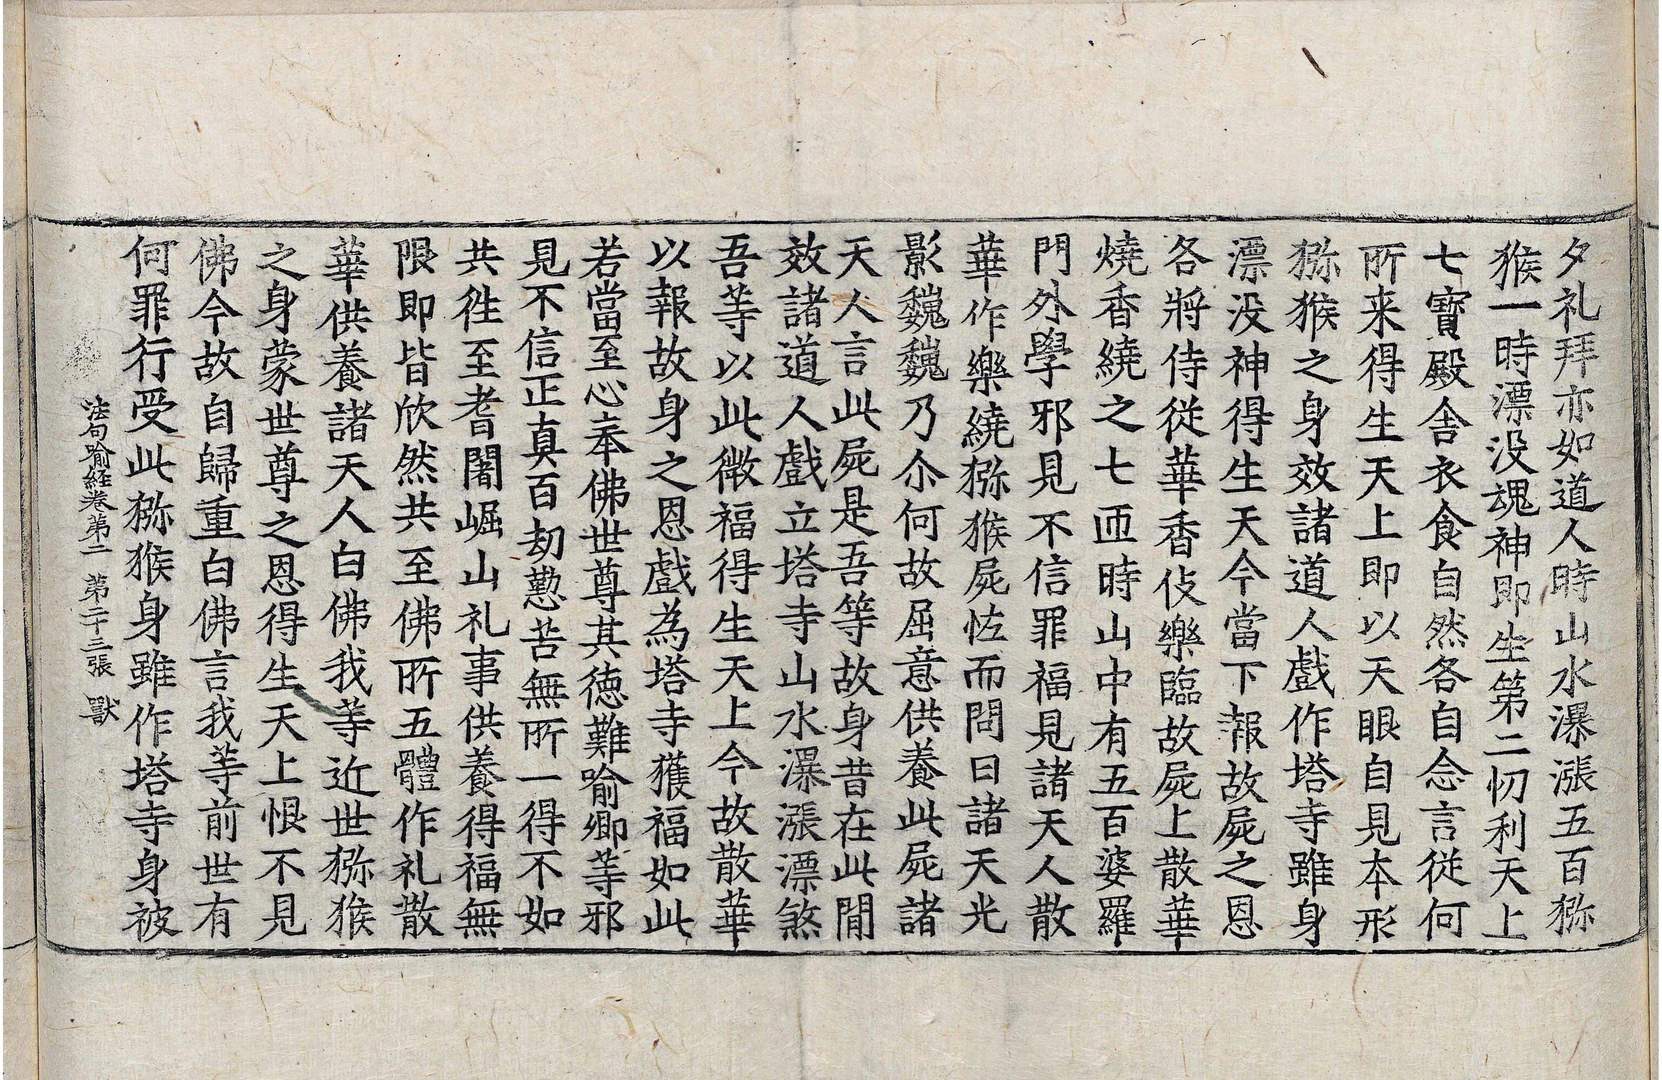 夕礼拜亦如道人時山水瀑漲五百猕
猴一時漂没魂神即生第二忉利天上
七寶殿舎衣食自然各自念言従何
所来得生天上即以天眼自見本形
猕猴之身效諸道人戲作塔寺雖身
漂没神得生天今當下報故屍之恩
各將侍従華香伎樂臨故屍上散華
燒香繞之七匝時山中有五百婆羅
門外學邪見不信罪福見諸天人散
華作樂繞猕猴屍恠而問曰諸天光
影巍巍乃尒何故屈意供養此屍諸
天人言此屍是吾等故身昔在此閒
效諸道人戲立塔寺山水瀑漲漂煞
吾等以此微福得生天上今故散華
以報故身之恩戲為塔寺獲福如此
若當至心奉佛世尊其德難喻卿等邪
見不信正真百劫懃苦無所一得不如
共徃至耆闍崛山礼事供養得福無
限即皆欣然共至佛所五體作礼散
華供養諸天人白佛我等近世猕猴
之身蒙世尊之恩得生天上恨不見
佛今故自歸重白佛言我等前世有
何罪行受此猕猴身雖作塔寺身被
法句喻經卷第二 第二十三張 獸